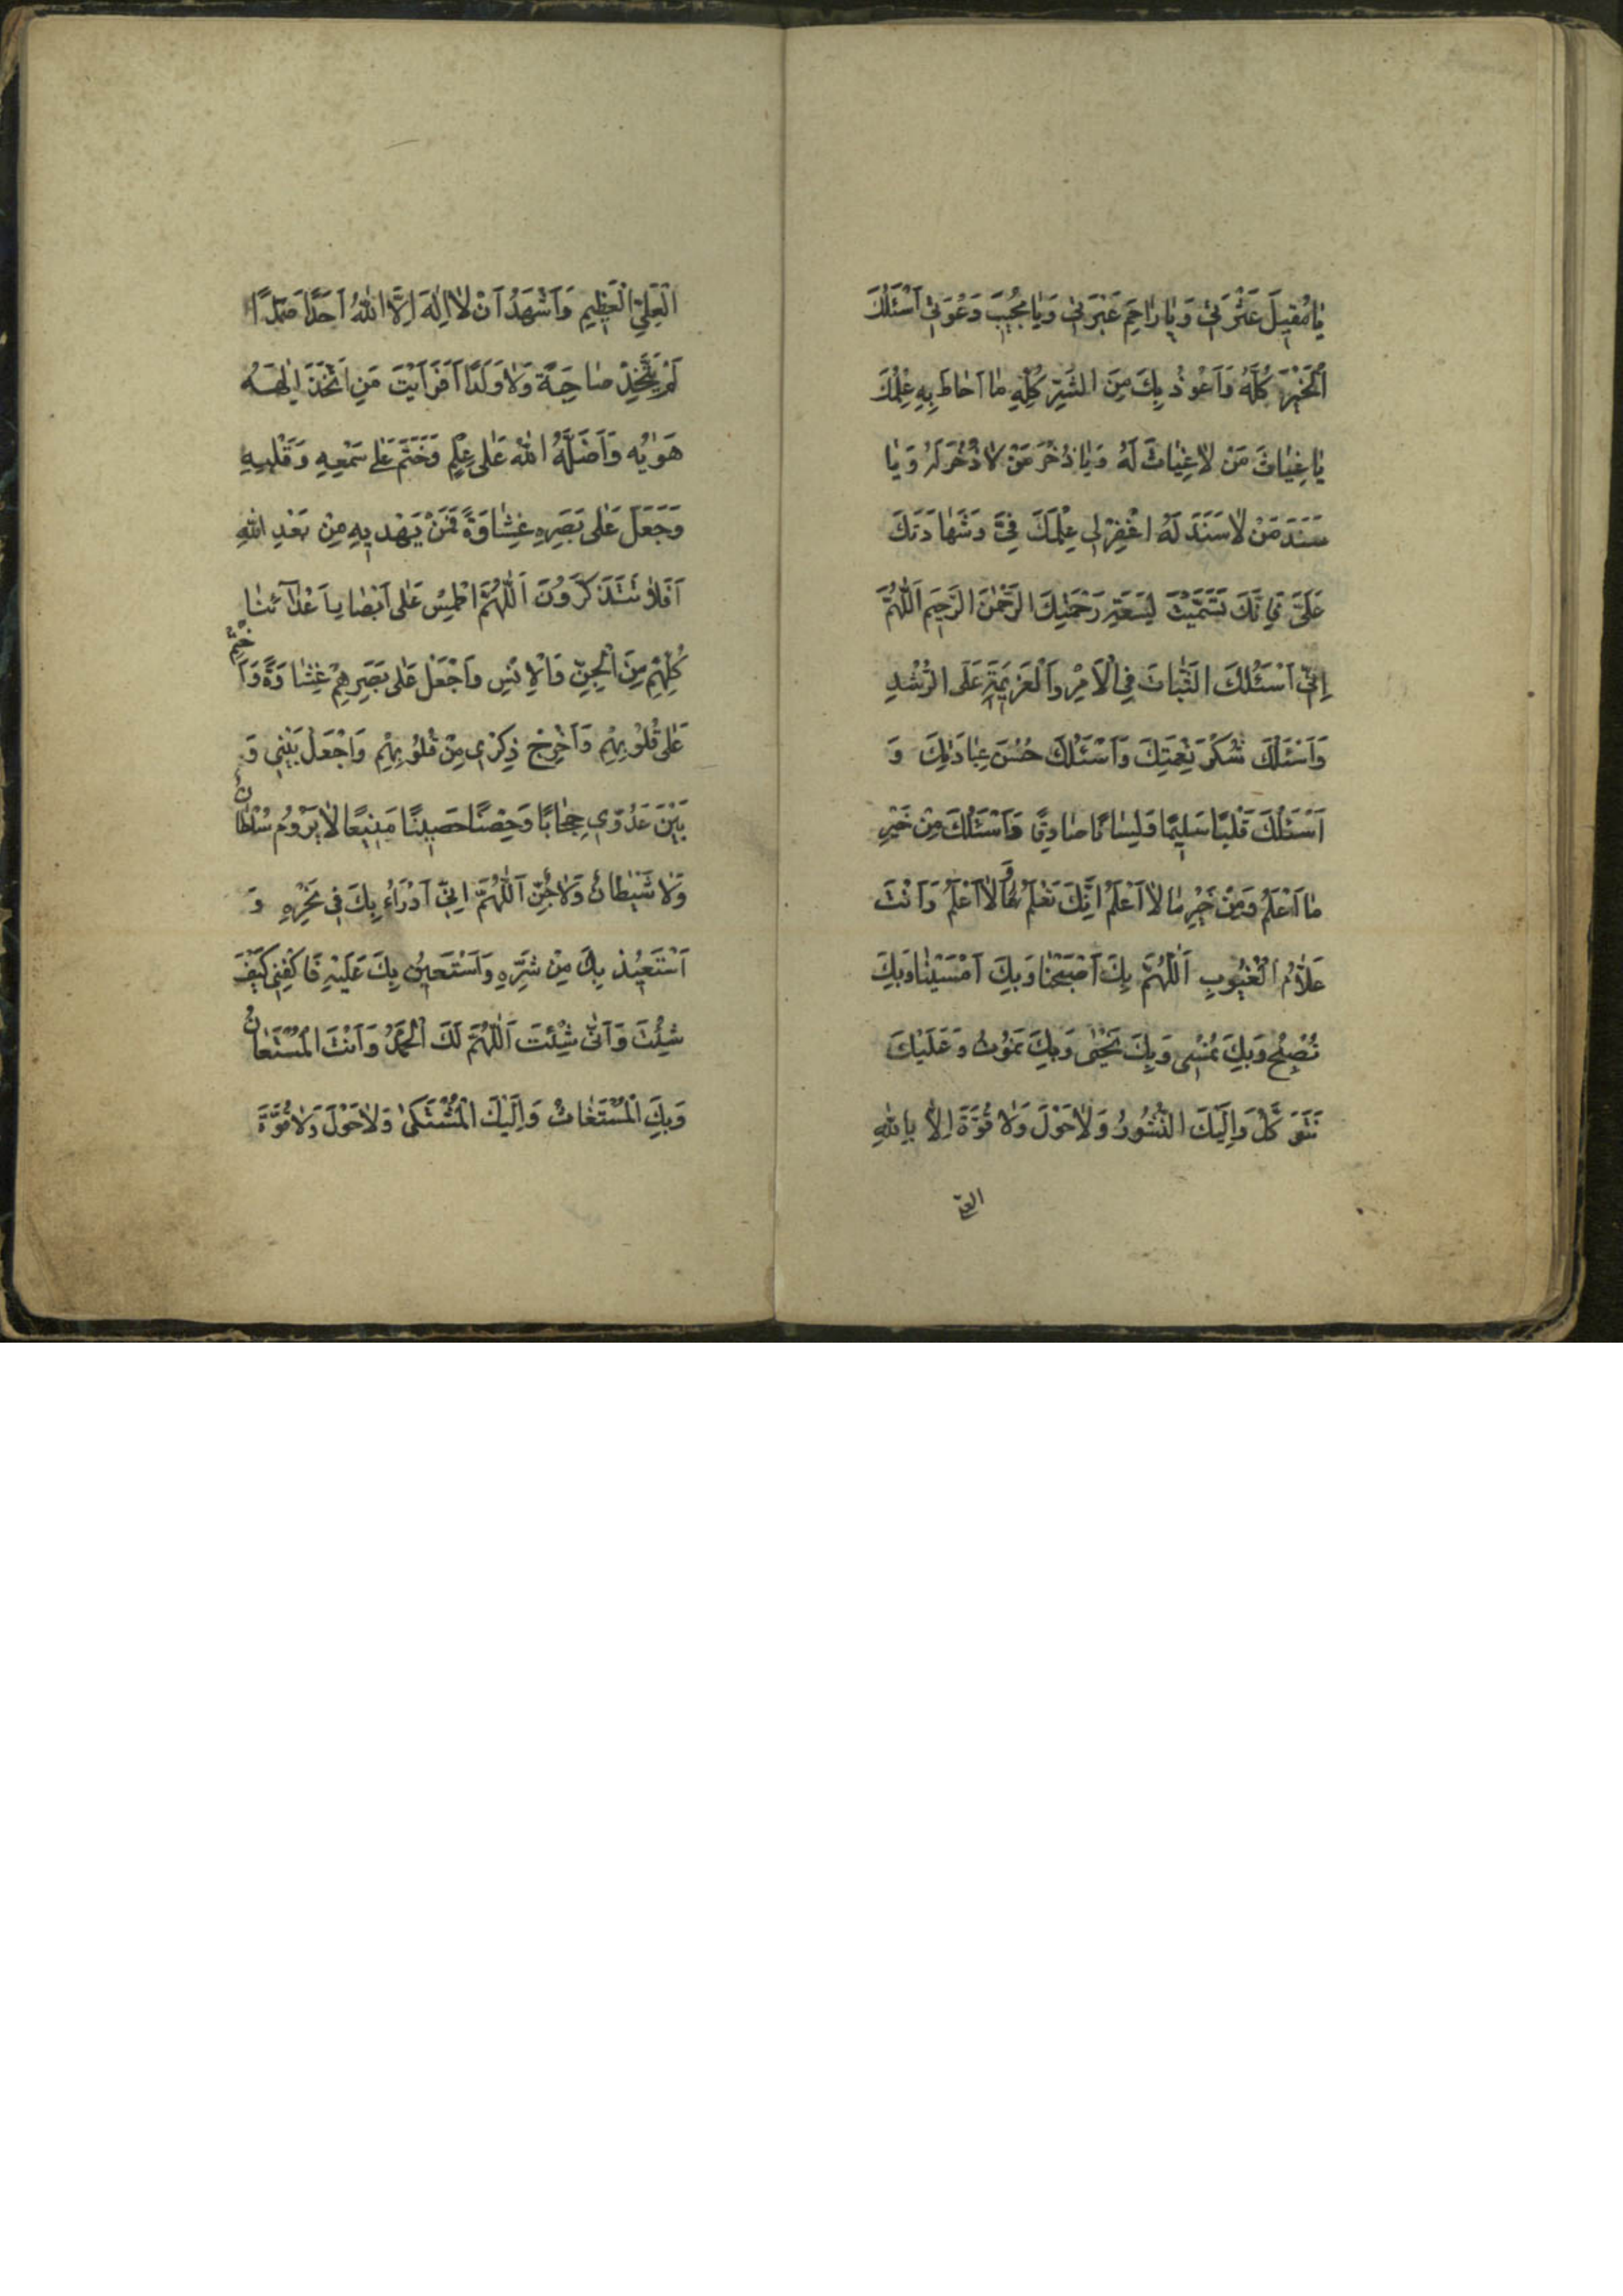 يٰا مُقِيلَ عَثْرَتِي وَيٰا رٰاحِمَ عَبْرَتِي وَيٰا مُجِيبَ دَعْوَتِي اَسْئَلُكَ
اَلْخَيْرَ كُلَّهُ وَاَعُوذُ بِكَ مِنَ الشَّرِّ كُلِّهِ مٰا اَحٰاطَ بِهِ عِلْمُكَ
يٰا غِيٰاثَ مَنْ لاٰ غِيٰاثَ لَهُ وَيٰا ذُخْرَ مَنْ لاٰ ذُخْرَ لَهُ وَيٰا
سَنَدَ مَنْ لاٰ سَنَدَ لَهُ اغْفِرْ لِي عِلْمَكَ فِيَّ وَشَهٰادَتَكَ
عَلَيَّ فَاِنَّكَ تَسَمَّيْتَ لِسَعَةِ رَحْمَتِكَ الرَّحْمٰنَ الرَّحِيمَ اَللّٰهُمَّ
اِنِّي اَسْئَلُكَ الثَّبٰاتَ فِي الْاَمْرِ وَالْعَزِيمَةِ عَلَى الرُّشْدِ
وَاَسْئَلُكَ شُكْرَ نِعْمَتِكَ وَاَسْئَلُكَ حُسْنَ عِبٰادَتِكَ وَ
اَسْئَلُكَ قَلْبًا سَلِيمًا وَلِسٰانًا صٰادِقًا وَاَسْئَلُكَ مِنْ خَيْرِ
مٰا اَعْلَمُ وَمِنْ خَيْرِ مٰا لاٰ اَعْلَمُ اِنَّكَ تَعْلَمُ وَمٰا لاٰ اَعْلَمُ وَاَنْتَ
عَلاّٰمُ الْغُيُوبِ اَللّٰهُمَّ بِكَ اَصْبَحْنٰا وَبِكَ اَمْسَيْنٰا وَبِكَ
نُصْبِحُ وَبِكَ نُمْسِي وَبِكَ نَحْيٰى وَبِكَ نَمُوتُ وَعَلَيْكَ
نَتَوَكَّلُ وَاِلَيْكَ النُّشُورُ وَلاٰ حَوْلَ وَلاٰ قُوَّةَ اِلاّٰ بِاللّٰهِ
العلي
الْعَلِيِّ الْعَظِيمِ وَاَشْهَدُ اَنْ لاٰ اِلٰهَ اِلاَّ اللّٰهُ اَحَدًا صَمَدًا
لَمْ يَتَّخِذْ صٰاحِبَةً وَلاٰ وَلَدًا اَفَرَاَيْتَ مَنِ اتَّخَذَ اِلٰهَهُ
هَوٰيهُ وَاَضَلَّهُ اللّٰهُ عَلٰى عِلْمٍ وَخَتَمَ عَلٰى سَمْعِهِ وَقَلْبِهِ
وَجَعَلَ عَلٰى بَصَرِهِ غِشٰاوَةً فَمَنْ يَهْدِيهِ مِنْ بَعْدِ اللّٰهِ
اَفَلاٰ تَتَذَكَّرُونَ اَللّٰهُمَّ اطْمِسْ عَلٰى اَبْصٰارِ اَعْدٰآئِنٰا
كُلِّهِمْ مِنَ الْجِنِّ وَالْاِنْسِ وَاجْعَلْ عَلٰى بَصَرِهِمْ غِشٰاوَةً وَاخْتِمْ
عَلٰى قُلُوبِهِمْ وَاَخْرِجْ ذِكْرِي مِنْ قُلُوبِهِمْ وَاجْعَلْ بَيْنِي وَ
بَيْنَ عَدُوِّي حِجٰابًا وَحِصْنًا حَصِينًا مَنِيعًا لاٰ يَرُومُ سُلْطٰانٌ
وَلاٰ شَيْطٰانٌ وَلاٰ جِنٌّ اَللّٰهُمَّ اِنِّي اَدْرَاُ بِكَ فِي نَحْرِهِ وَ
اَسْتَعِيذُ بِكَ مِنْ شَرِّهِ وَاَسْتَعِينُ بِكَ عَلَيْهِ فَاكْفِنِي كَيْفَ
شِئْتَ وَاَنّٰى شِئْتَ اَللّٰهُمَّ لَكَ الْحَمْدُ وَاَنْتَ الْمُسْتَعٰانُ
وَبِكَ الْمُسْتَغٰاثُ وَاِلَيْكَ الْمُشْتَكٰى وَلاٰ حَوْلَ وَلاٰ قُوَّةَ